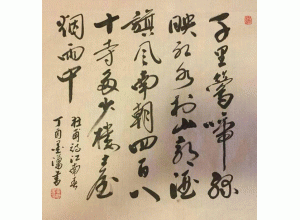 千里鶯啼綠
映紅水村山郭酒
旗風南朝四百八
十寺多少樓臺
烟雨中
詩江南春
丁酉
書